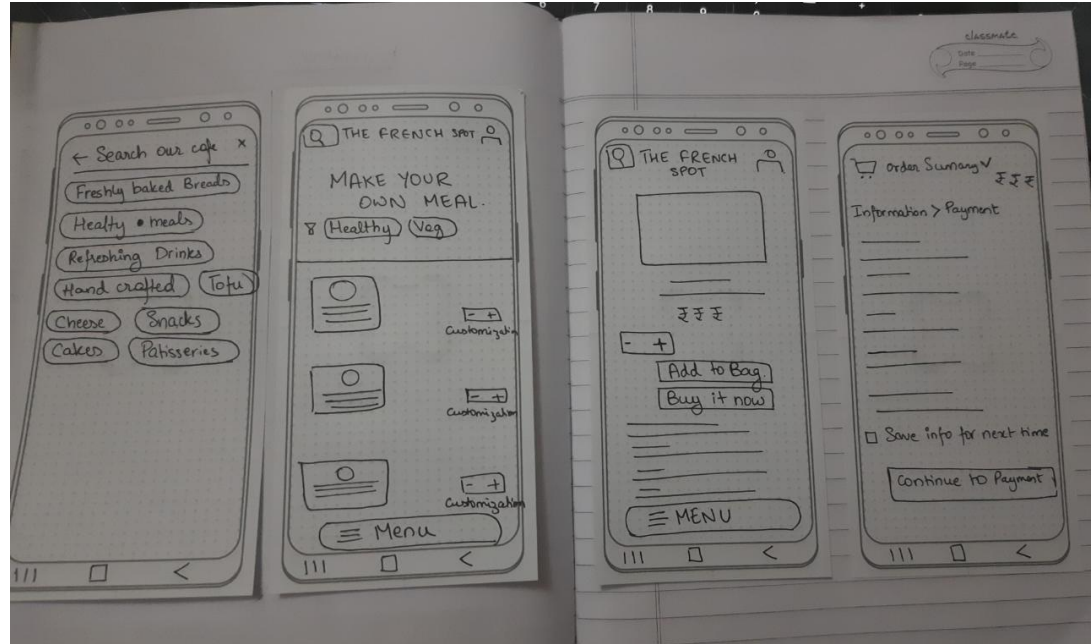 6 7 8 9
classmate
Date
Page
← Search our cafe ×
Freshly baked Breads
Healty meals
Refreshing Drinks
Hand crafted Tofu
Cheese Snacks
Cakes Patisseries
THE FRENCH SPOT
MAKE YOUR
OWN MEAL.
8 Healthy Veg
- +
Customization
- +
Customization
- +
Customization
Menu
THE FRENCH
SPOT
₹ ₹ ₹
- +
Add to Bag.
Buy it now
MENU
order Sumary
₹ ₹ ₹
Information > Payment
Save info for next time
Continue to Payment